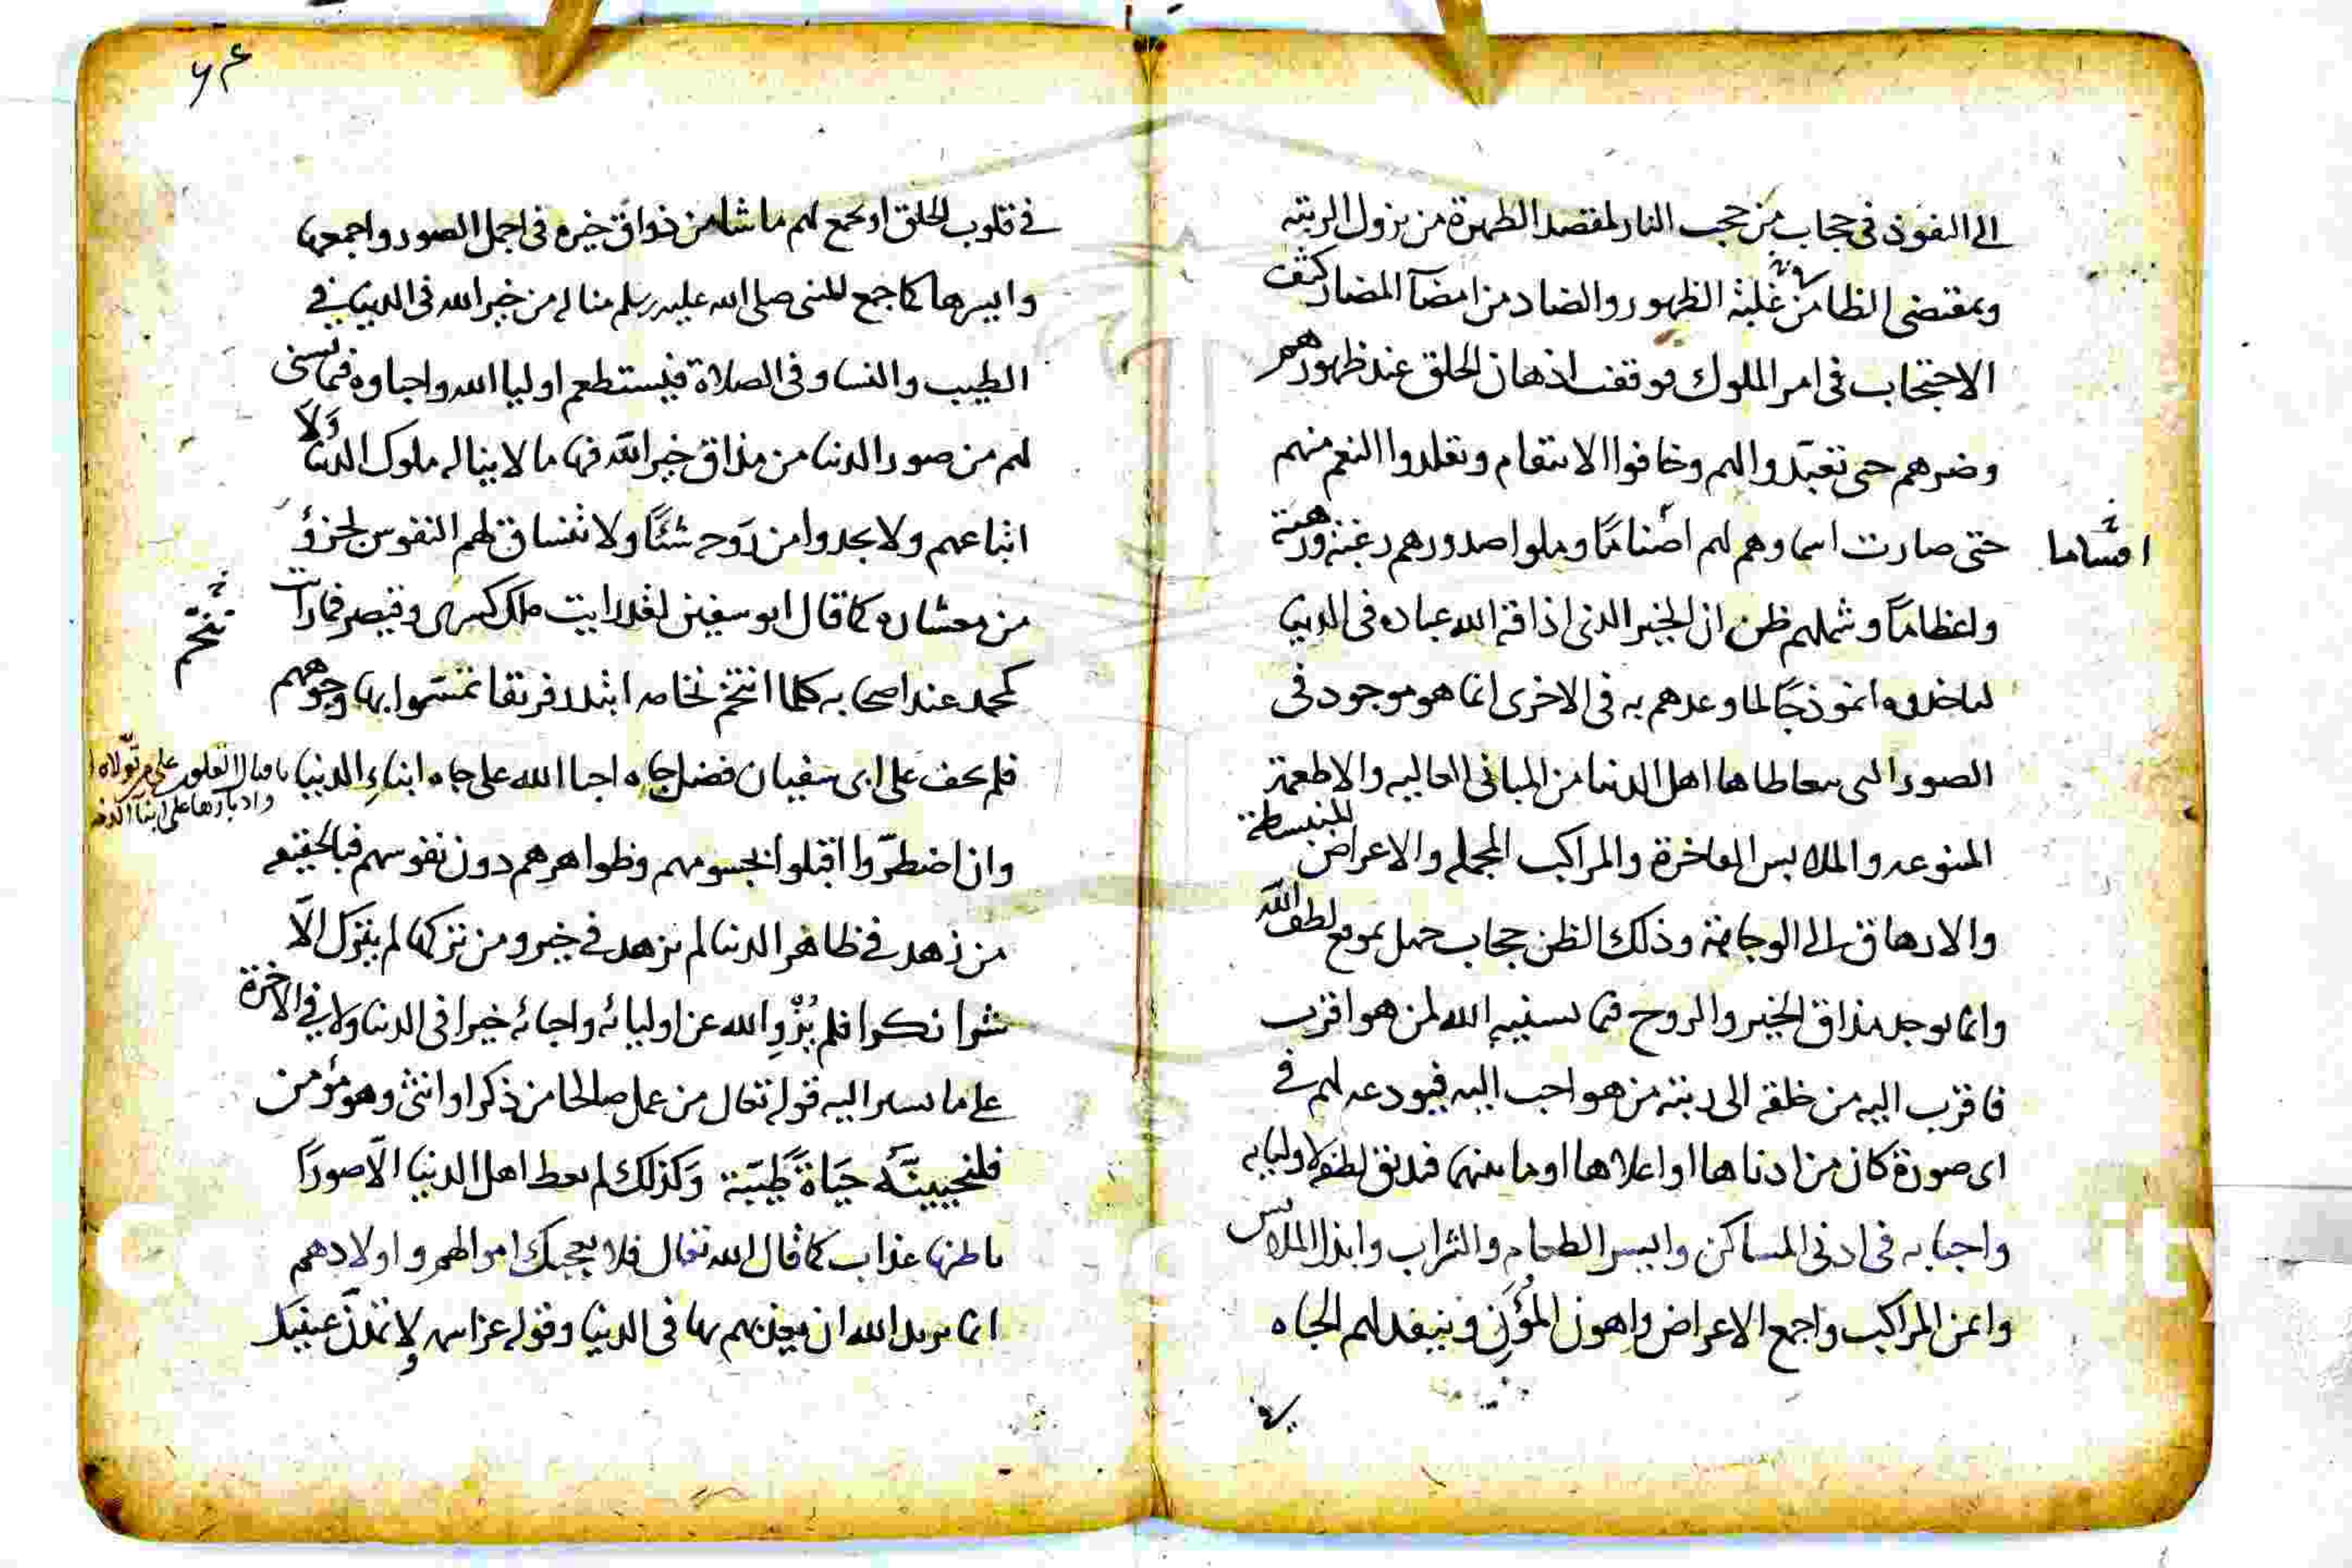 الى النفوذ فى حجاب من حجب النار لمقصد الطهرة من نزول الرتبه
وبمقتضى الظا من غلبة الظهور والضاد من امضآ المضار كثف
الاحتجاب فى امر الملوك فوقفت اذهان الخلق عند ظهورهم
وضرهم حتى تعبّدوا لهم وخافوا الانتقام وتقلدوا النعم منهم
حتى صارت اسماوهم لهم اصناما وملوا صدورهم رغبة ورهبة
اقساما
واعظاماً وشملهم ظن ان الخير الذى اذاقه الله عباده فى الدنيا
لياخذوه انموذجًا لما وعدهم به فى الاخرى انما هو موجود فى
الصور التى يتعاطاها اهل الدنيا من المبانى العاليه والاطعمة
المنوعه والملابس الفاخرة والمراكب المجمله والاعراض المنبسطة
والارهاق الى الوجاهة وذلك الظن حجاب جهل بموقع لطف الله
وانما يوجد مذاق الخير والروح فيما يسنيه الله لمن هو اقرب
فاقرب اليه من خلقه الى رتبة من هو احب اليه فيودعه لهم فى
اى صورة كان من ادناها او اعلاها او ما بينهما فيذيق لطفه لاوليايه
واحبايه فى ادنى المساكن وايسر الطعام والشراب وابذا الملابس
وايمن المراكب واجمع الاعراض واهون المؤن وينفد لهم الجاه
فى
ع۶
فى قلوب الخلق او يجمع لهم ما شا من ذواق خيره فى اجمل الصور واجمعها
وايسرها كما جمع للنبى صلى الله عليه وسلم مناله من خير الله فى الدنيا فى
الطيب والنسا وفى الصلاة فيستطعم اوليا الله واحباوه فيما يسنى
لهم من صور الدنيا من مذاق خير الله فيها ما لا يناله ملوك الدنيا ولا
اتباعهم ولا يجدوا من روحه شئًا ولا تنساق لهم النفوس لجزؤ
من معشاره كما قال ابو سفين لقد رايت ملك كسرى وقيصر فما رايت
تنخّم
كمحمد عند اصحابه كلما انتخم نخامه ابتدر فريقا تمسّحوا بها وجوههم
فلم يخف على ابى سفيان فضل جاه احبا الله على جاه ابناءِ الدنيا باقبال القلوب على من تولاه الله
وادبارها على ابنآ الدنيا
وان اضطرّوا اقبلوا بجسومهم وظواهرهم دون نفوسهم فبالحقيقه
من زهد فى ظاهر الدنيا لم يزهد فى خير ومن تركها لم يترك الّا
شرا نكرا فلم يُزْوِ الله عن اوليائه واحبائه خيرا فى الدنيا ولا فى الاخرة
على ما يسير اليه قوله تعالى من عمل صالحا من ذكر او انثى وهو مؤمن
فلنحيينّه حيَاةً طيّبَة وَكذلك لم يعط اهل الدنيا الّا صورًا
باطنها عذاب كما قال الله تعالى فلا يعجبك اموالهم واولادهم
انما يريد الله ان يعذبهم بها فى الدنيا وقوله عز اسمه ولا تمدّنّ عينيك